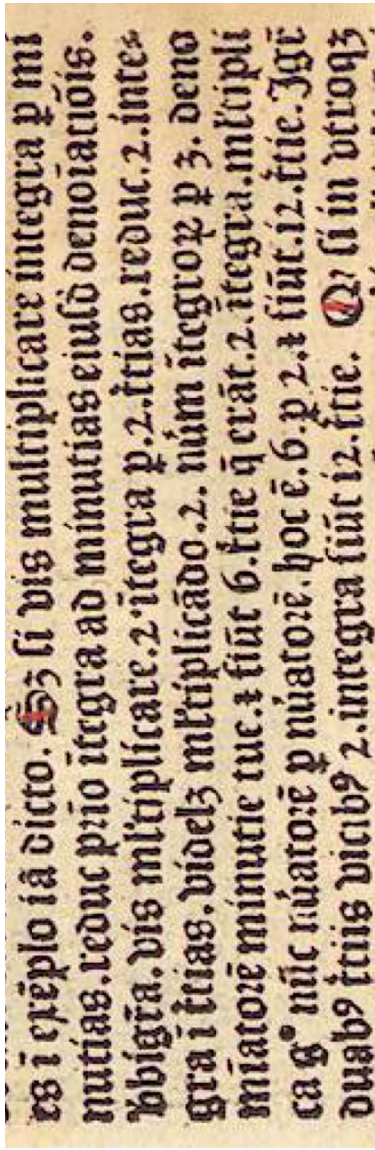 es i exēplo iā dicto. Sꝫ si vis multiplicare integra ꝑ mi
nutias.reduc pꝛio ītegra ad minutias eiusd̄ denoīatiōis.
Vbi gr̄a.vis ml̓tiplicare.2 ītegra ꝑ.2.t̄tias.reduc.2.inte⸗
gra i t̄tias.videlꝫ ml̓tiplicādo.2. núm ītegroꝝ ꝑ 3. deno
mīatoꝛē minutie tue.⁊ fiūt 6.t̄tie q̄ erāt.2.ītegra.ml̓tipli
ca gͦ nūc nūatoꝛē ꝑ nūatoꝛē.hoc ē.6.ꝑ 2.⁊ fiūt.12.t̄tie.Igr̄
duabꝰ t̄tiis vicibꝰ 2.integra fiūt 12.t̄tie. Qꝛ si in vtroqꝫ